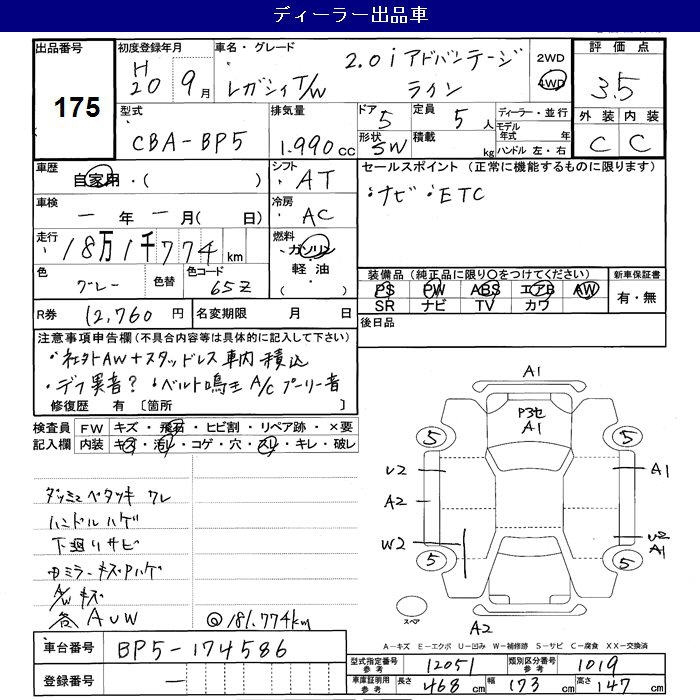 ディーラー出品車
出品番号 175
初度登録年月 H20 9月
車名・グレード レガシィT/W 2.0i アドバンテージライン
2WD 4WD
評価点 3.5
型式 CBA-BP5
排気量 1.990cc
ドア 5
形状 SW
定員 5人
積載 kg
ディーラー・並行
モデル年式 年
ハンドル 左・右
外装 内装
C C
車歴 自家用・( )
シフト AT
セールスポイント (正常に機能するものに限ります)
・ナビ ・ETC
車検 ー年ー月( )
冷房 AC
走行 18万1千774km
燃料 ガソリン 軽・油 ( )
色 グレー
色替
色コード 65Z
装備品 (純正品に限り〇をつけてください)
PS PW ABS エアB AW
SR ナビ TV カワ
新車保証書 有・無
R券 12,760円
名変期限 月 日
後日品
注意事項申告欄 (不具合内容等は具体的に記入して下さい)
・社外AW+スタッドレス車内積込
・デフ異音? ・ベルト鳴き A/Cプーリー音
修復歴 有 〔箇所 〕
検査員記入欄
FW キズ・飛石・ヒビ割・リペア跡・×要
内装 キズ・汚レ・コゲ・穴・スレ・キレ・破レ
ハンドルハゲ
下廻りサビ
A/Wキズ
各AUW
@181.774km
A1
P3セ
A1
5 5
U2 A1
A2
W2 U2
A1
5 5
スペア
A2
A-キズ E-エクボ U-凹み W-補修跡 S-サビ C-腐食 XX-交換済
車台番号 BP5-174586
登録番号 ー
型式指定番号 参考 12051
類別区分番号 参考 1019
車庫証明用 参考 長さ 468cm 幅 173cm 高さ 147cm